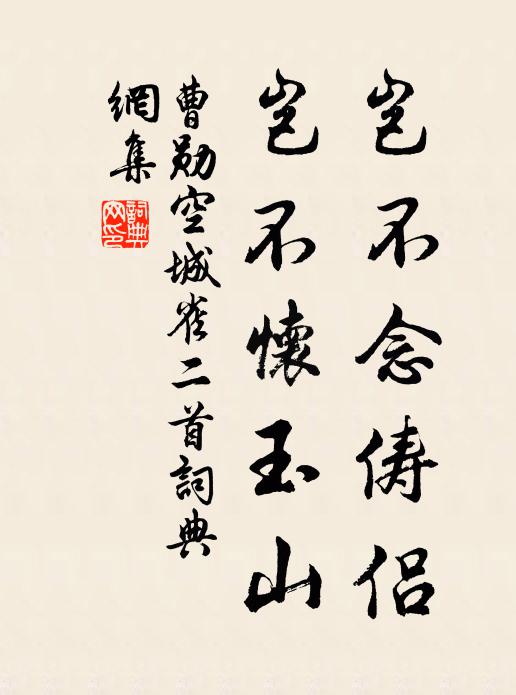 豈不念儔侶
豈不懷玉山
曹勛空城雀二首詞典
網集
詞典網印